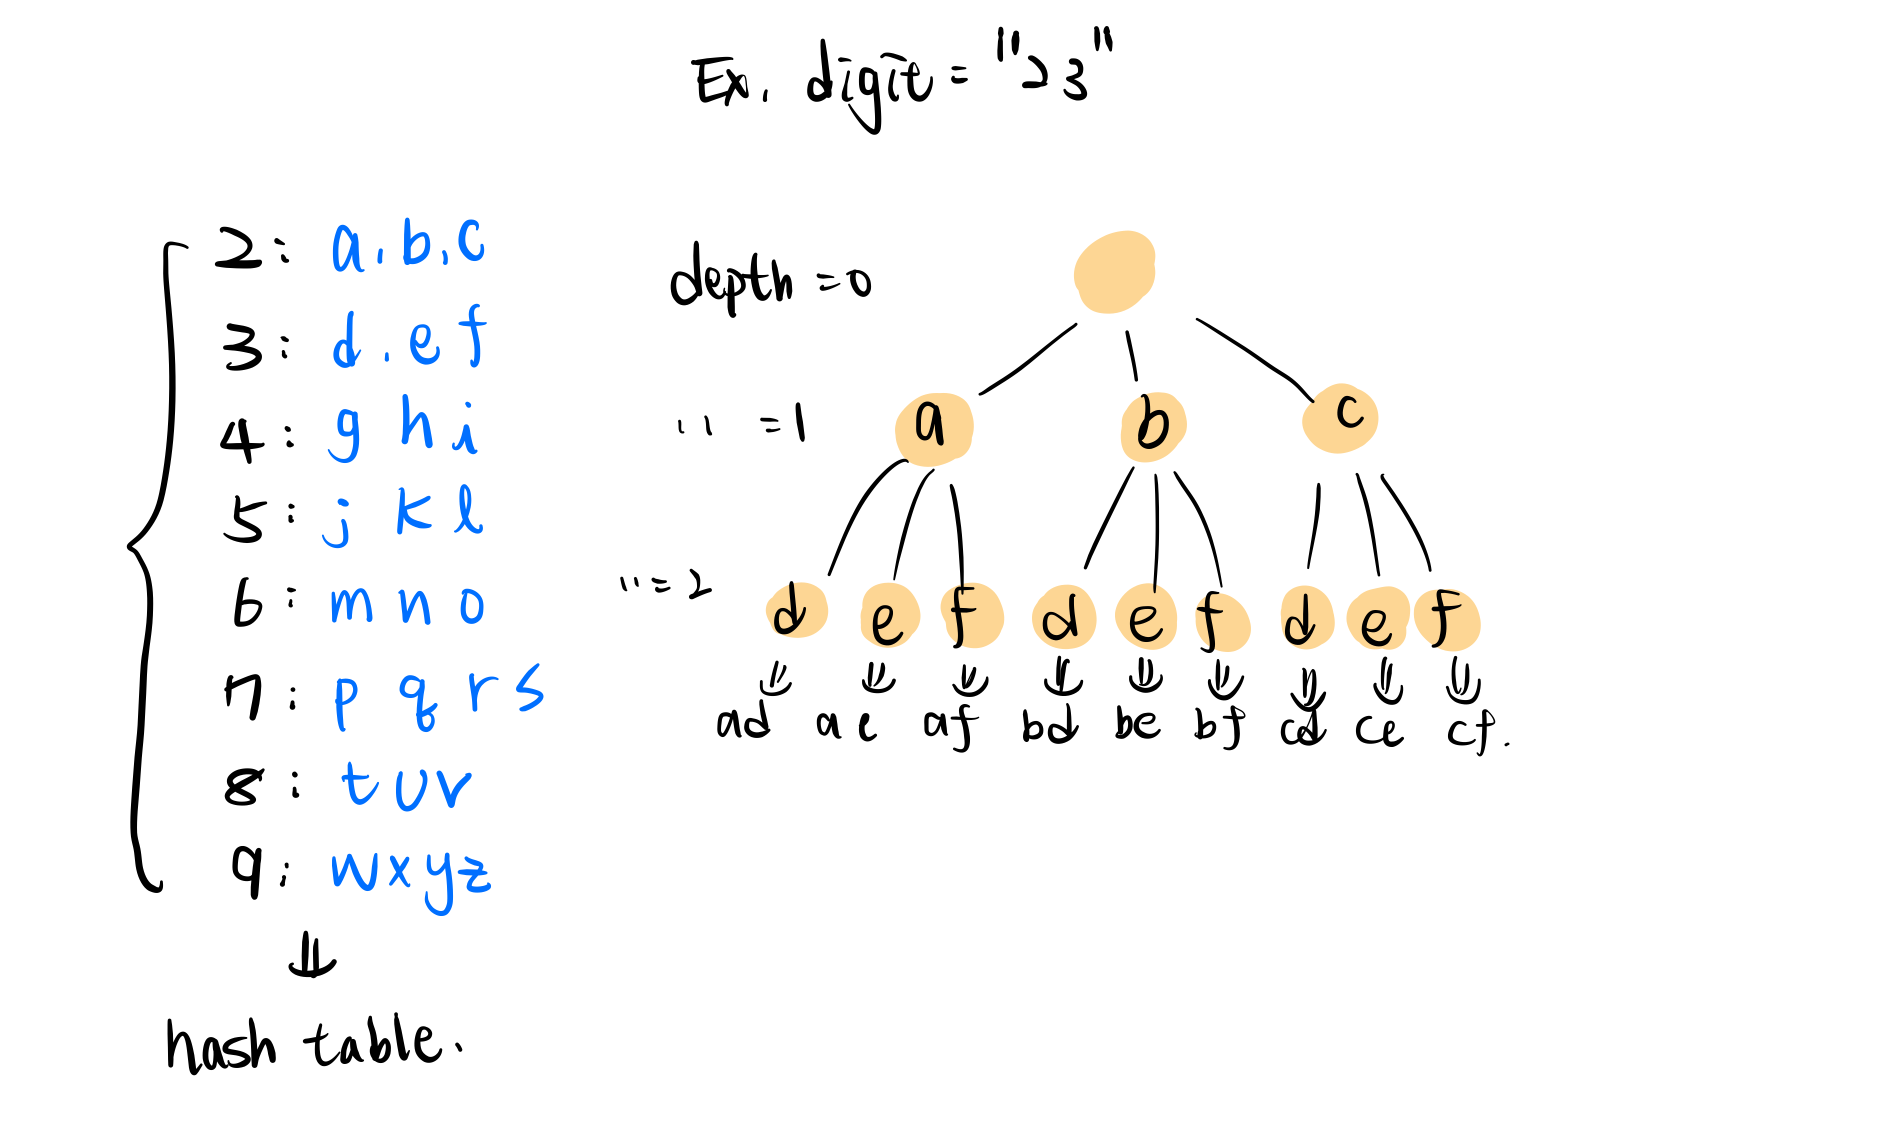 Ex. digit = "23"
2: a, b, c
3: d, e f
4: g h i
5: j k l
6: m n o
7: p q r s
8: t u v
9: w x y z
hash table.
depth = 0
" = 1
a b c
" = 2
d e f d e f d e f
ad ae af bd be bf cd ce cf.